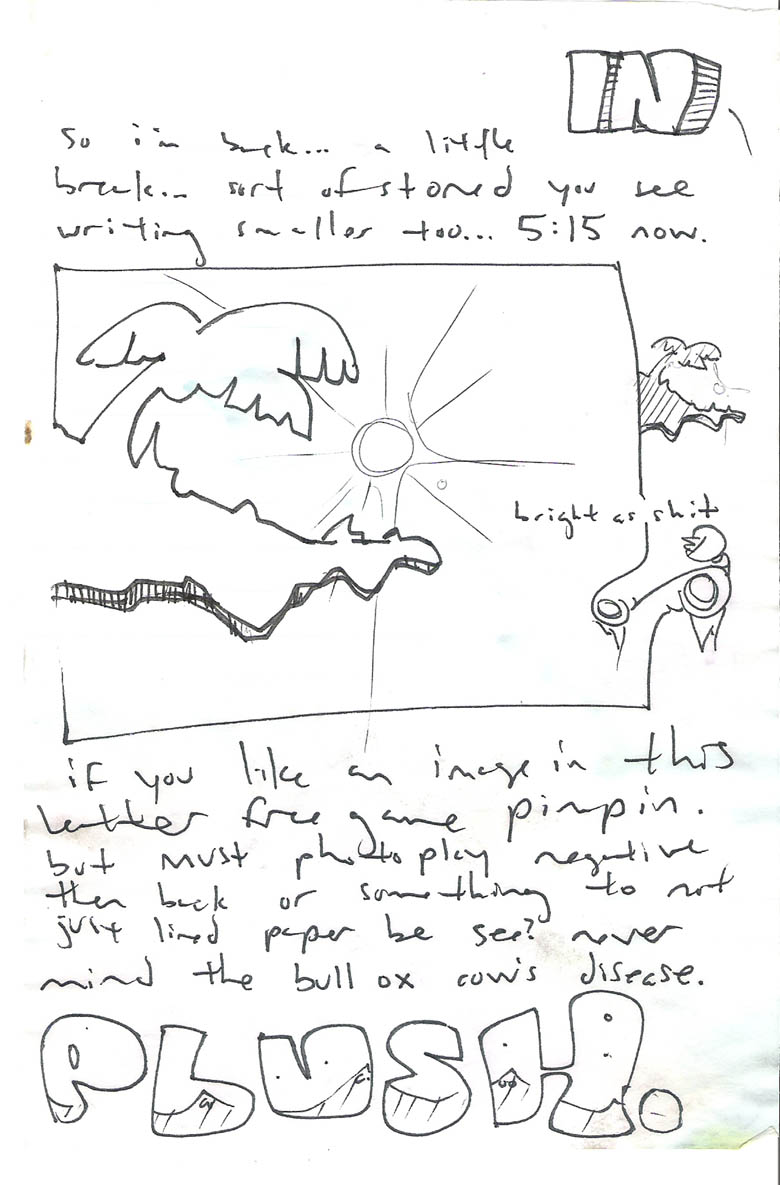 IN
so i'm back... a little
break... sort of stoned you see
writing smaller too... 5:15 now.
bright as shit
if you like an image in this
letter free game pimpin.
but must photo play negative
then back or something to not
just lined paper be see? never
mind the bull ox cow's disease.
PLUSH.